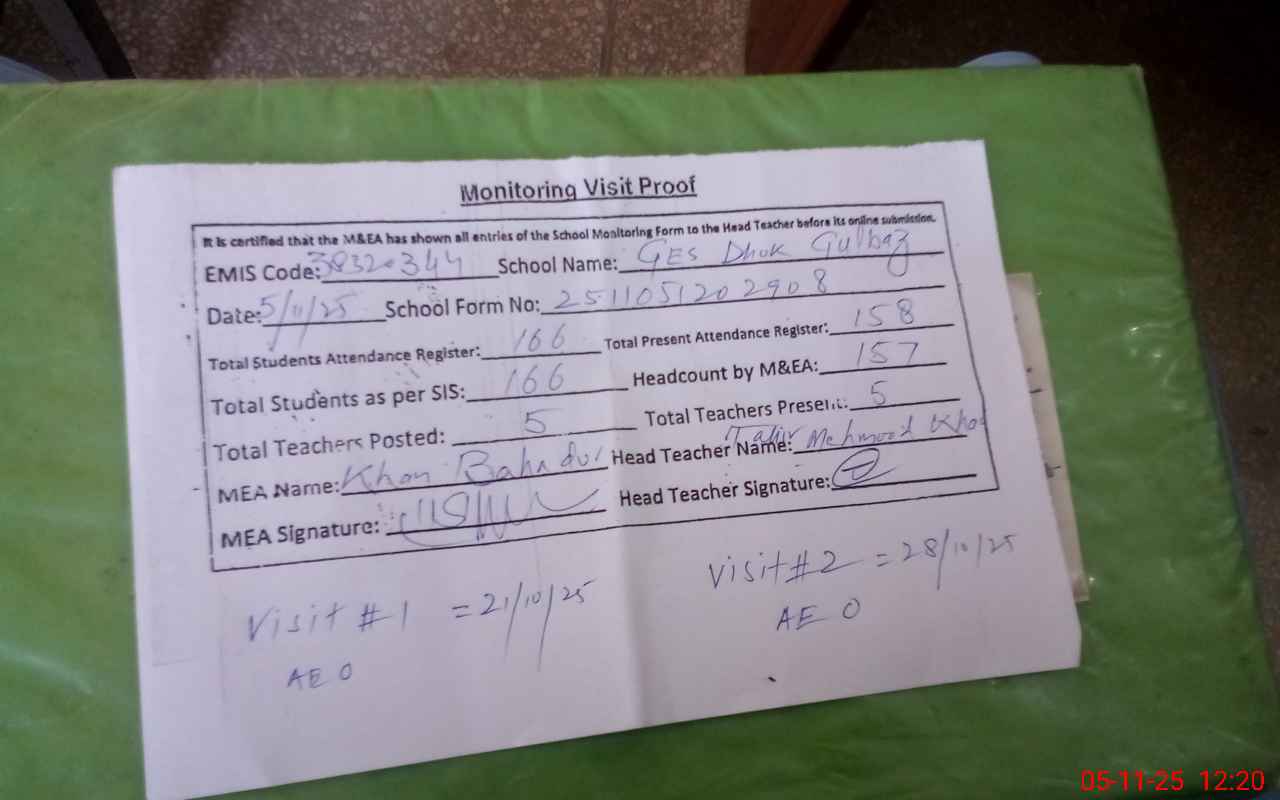 Monitoring Visit Proof
It is certified that the M&EA has shown all entries of the School Monitoring Form to the Head Teacher before its online submission.
EMIS Code: 38320344 School Name: GES Dhok Gulbaz
Date: 5/11/25 School Form No: 2511051202908
Total Students Attendance Register: 166 Total Present Attendance Register: 158
Total Students as per SIS: 166 Headcount by M&EA: 157
Total Teachers Posted: 5 Total Teachers Present: 5
MEA Name: Khan Bahadur Head Teacher Name: Tahir Mehmood Khan
MEA Signature: Head Teacher Signature:
Visit #1 = 21/10/25 Visit #2 = 28/10/25
AEO AEO
05-11-25 12:20